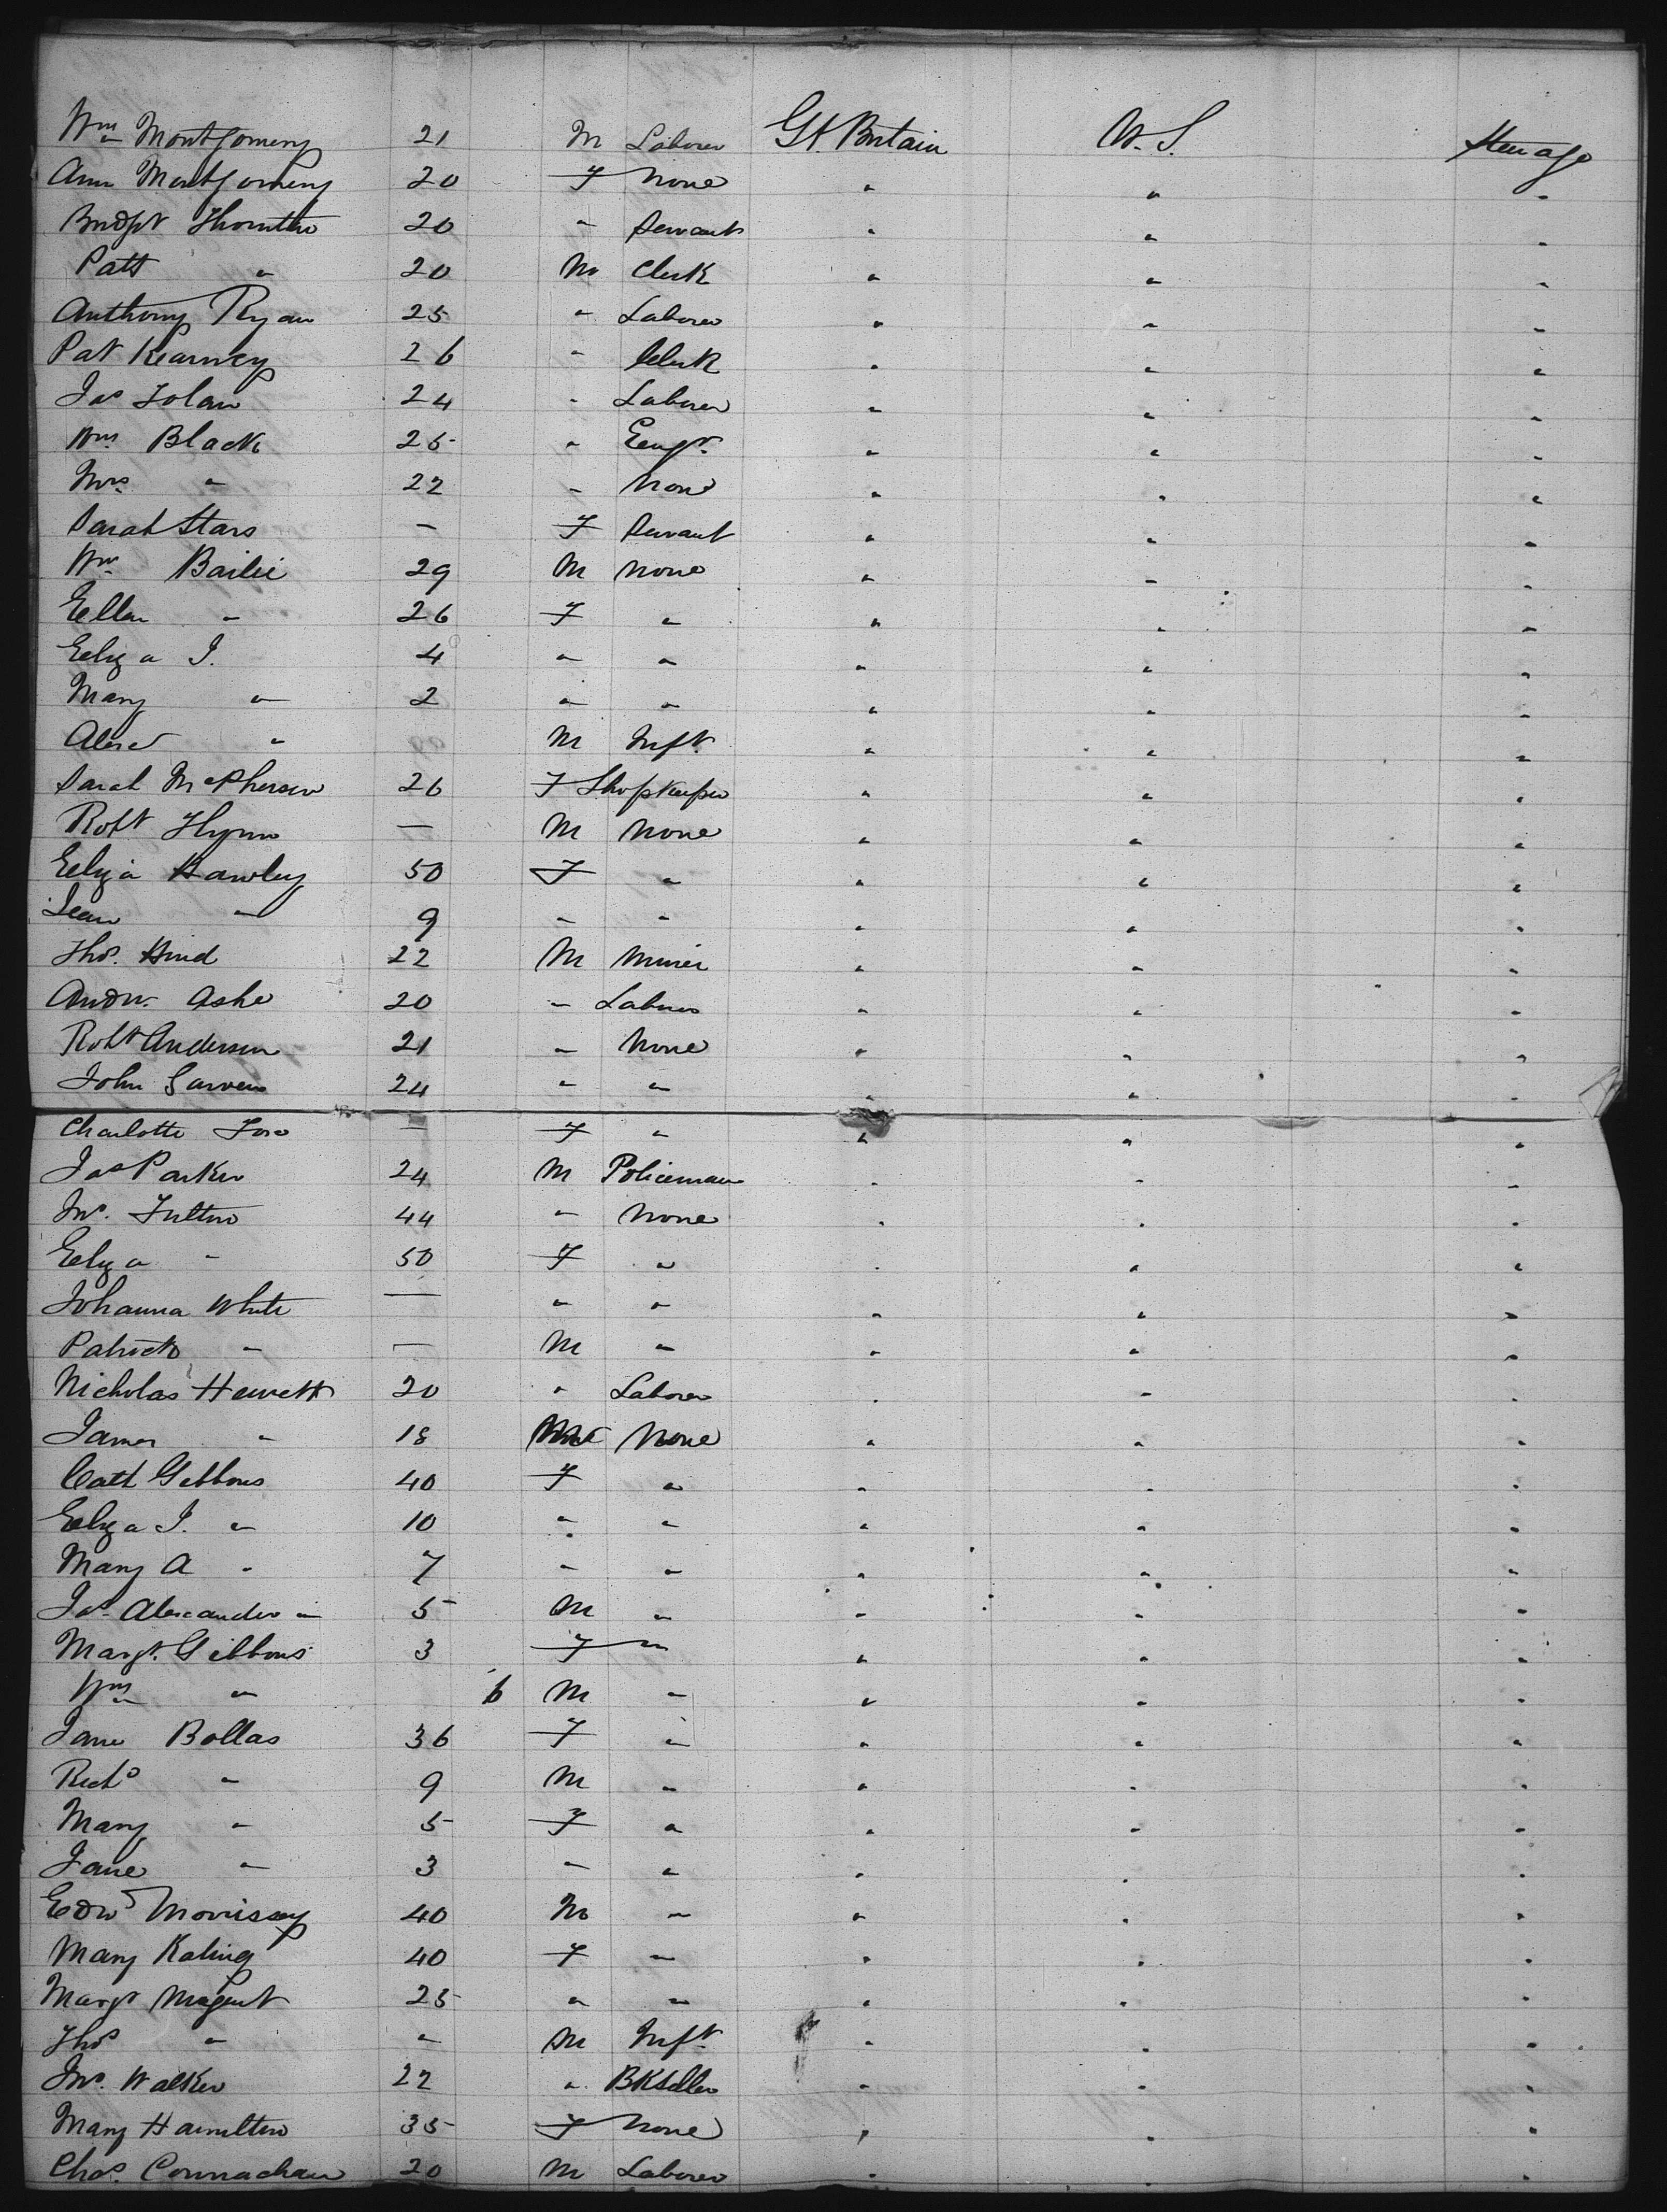 Wm Montgomery 21 M Laborer Gt. Britain U.S. Steerage
Ann Montgomery 20 F None " " "
Bridgt Thornton 20 " Servant " " "
Patt " 20 M Clerk " " "
Anthony Ryan 25 " Laborer " " "
Pat Kearney 26 " Clerk " " "
Jas Tolan 24 " Laborer " " "
Wm Black 25 " Eengr. " " "
Mrs " 22 " None " " "
Sarah Stars — F Servant " " "
Wm Bailie 29 M None " " "
Ellen " 26 F " " " "
Eliza J. 4 " " " " "
Mary " 2 " " " " "
Alexr " M Inft. " " "
Sarah McPherson 26 F Shopkeeper " " "
Robt Flynn — M None " " "
Eliza Hawley 50 F " " " "
" 9 " " " " "
Thos. Hind 22 M Miner " " "
Andw. Ashe 20 " Laborer " " "
Robt Anderson 21 " None " " "
John 24 " " " " "
Charlotte — F " " " "
Jas Parker 24 M Policeman " " "
Jno. Fulton 44 " None " " "
Eliza " 50 F " " " "
Johanna White — " " " " "
Patrick " — M " " " "
Nicholas Hewett 20 " Laborer " " "
James " 18 M None " " "
Cath Gibbons 40 F " " " "
Eliza J. " 10 " " " " "
Mary A " 7 " " " " "
Jas. Alexander " 5 M " " " "
Margt. Gibbons 3 F " " " "
Wm " 6 M " " " "
Jane Bollas 36 F " " " "
Richd " 9 M " " " "
Mary " 5 F " " " "
Jane " 3 " " " " "
Edwd Morrissey 40 M " " " "
Mary 40 F " " " "
Margt Nugent 25 " " " " "
Thos " " M Inft. " " "
Jno. Walker 22 " BKseller " " "
Mary Hamilton 35 F None " " "
Chas. Connachan 20 M Laborer " " "